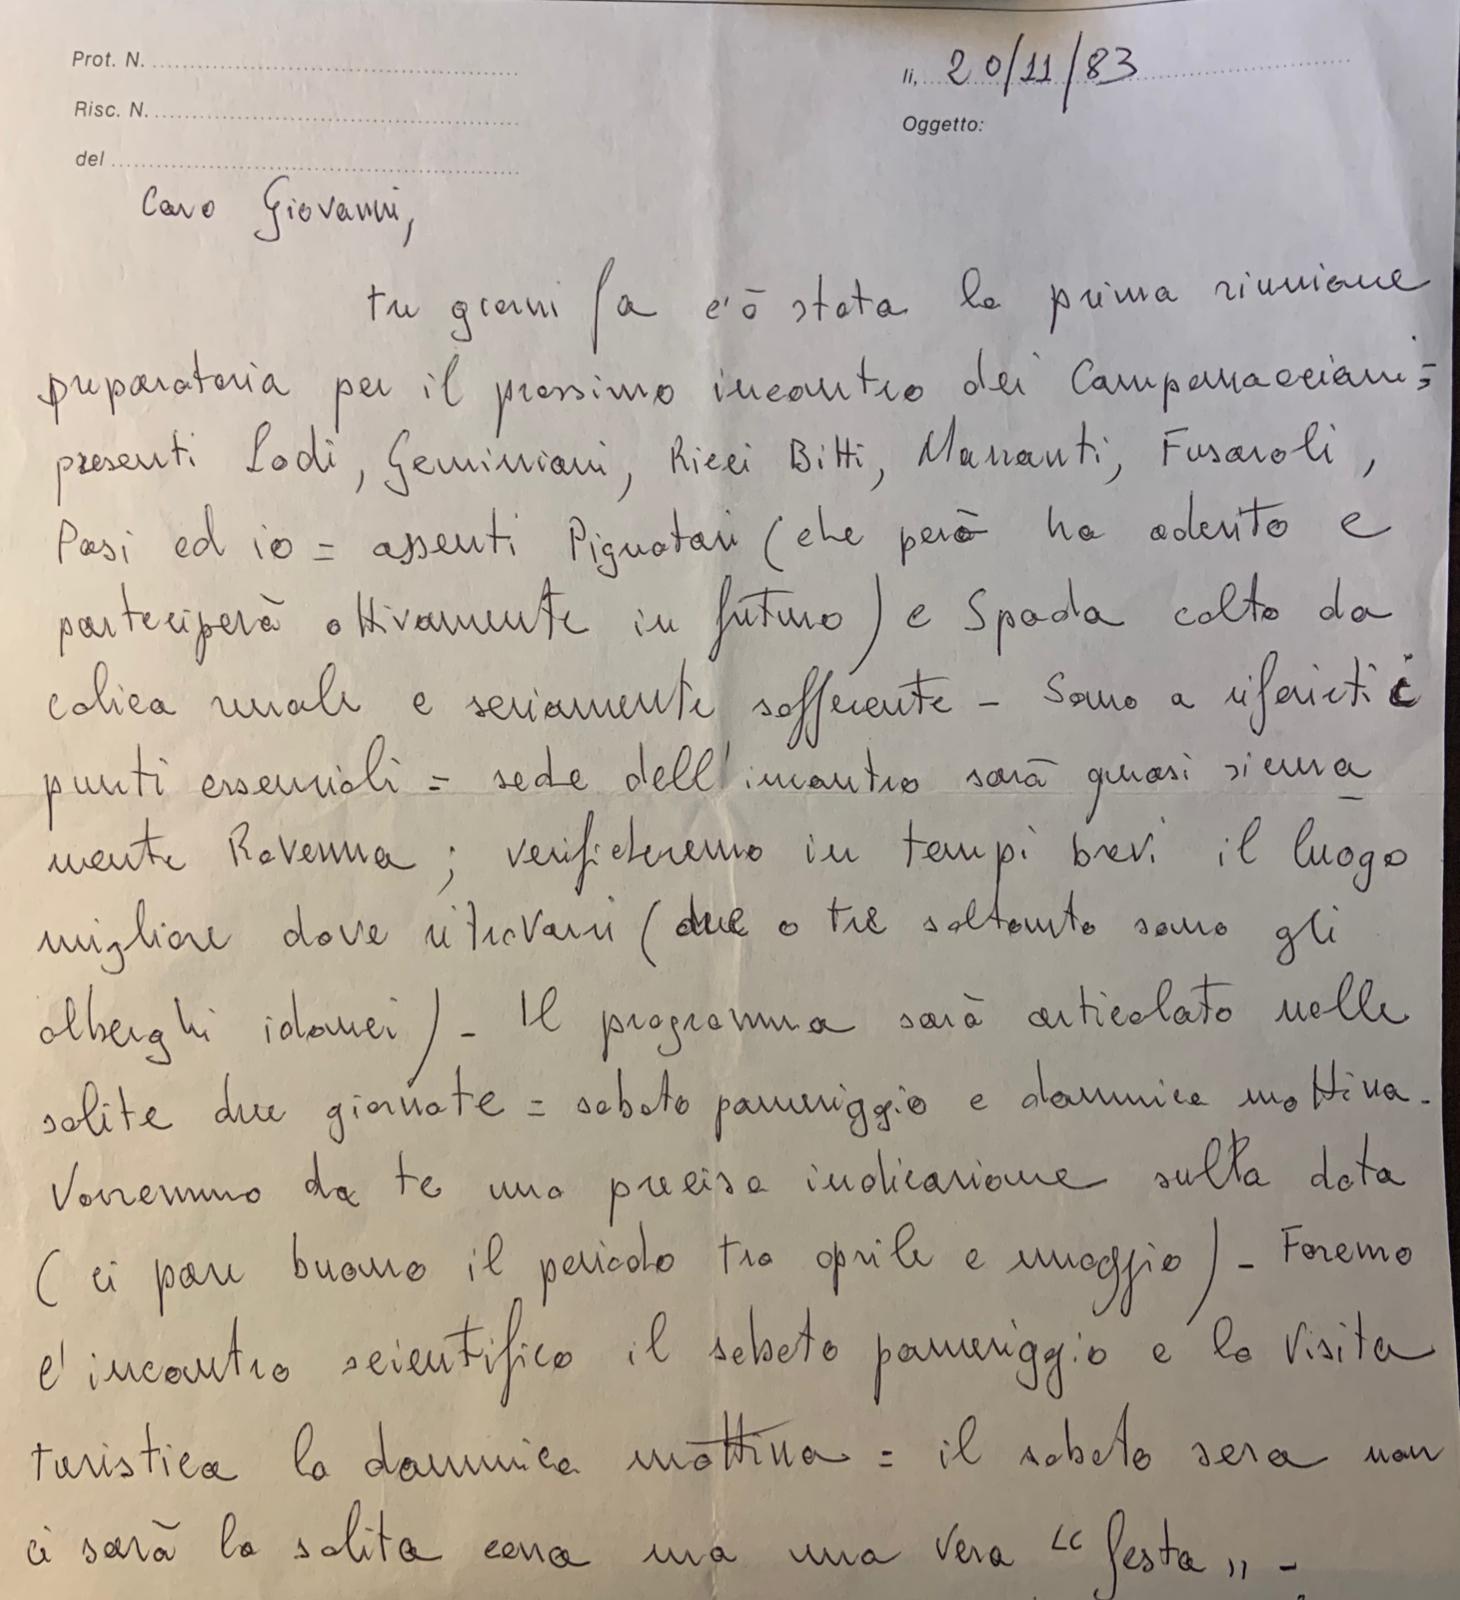 Prot. N.
li, 20/11/83
Risc. N.
Oggetto:
del
Caro Giovanni,
tre giorni fa c'è stata la prima riunione
preparatoria per il prossimo incontro dei Campanacciani =
presenti Lodi, Geminiani, Ricci Bitti, Marranti, Fusaroli,
Pasi ed io = assenti Pignatari (che però ha aderito e
parteciperà attivamente in futuro) e Spada colto da
colica renale e seriamente sofferente - Sono a riferirti i
punti essenziali = sede dell'incontro sarà quasi sicura
mente Ravenna; verificheremo in tempi brevi il luogo
migliore dove ritrovarci (due o tre soltanto sono gli
alberghi idonei) - Il programma sarà articolato nelle
solite due giornate = sabato pomeriggio e domenica mattina -
Vorremmo da te una precisa indicazione sulla data
(ci pare buono il periodo tra aprile e maggio) - Faremo
l'incontro scientifico il sabato pomeriggio e la visita
turistica la domenica mattina = il sabato sera non
ci sarà la solita cena ma una vera "festa" -